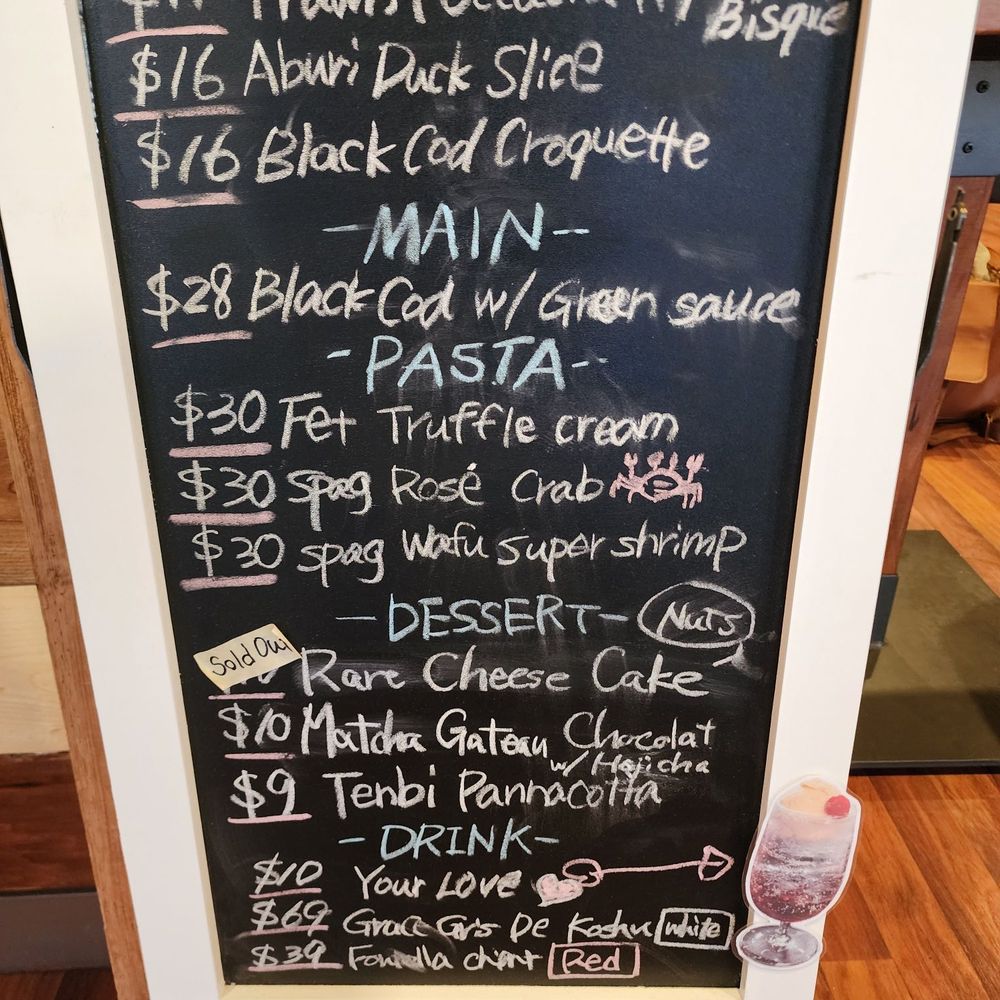 Bisque
$16 Aburi Duck Slice
$16 Black Cod Croquette
-MAIN-
$28 Black Cod w/ Green sauce
-PASTA-
$30 Fet Truffle cream
$30 spag Rosé Crab
$30 spag Wafu super shrimp
-DESSERT- Nuts
Sold Out Rare Cheese Cake
$10 Matcha Gateau Chocolat
w/ Hojicha
$9 Tenbi Pannacotta
-DRINK-
$10 Your LOVE
$69 Grace Gris De Koshu white
$39 Red